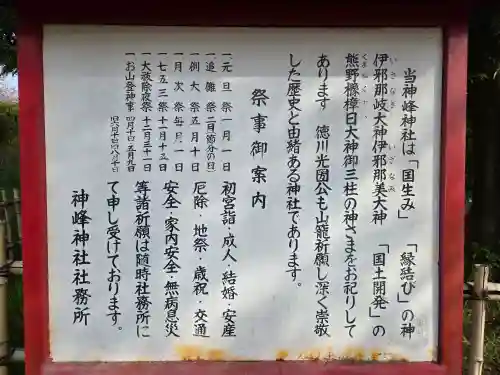 当神峰神社は「国生み」「縁結び」の神
伊邪那岐大神伊邪那美大神「国土開発」の
いさなぎ
いさなみ
熊野櫲樟日大神御三柱の神さまをお祀りして
あります 徳川光圀公も山籠祈願し深く崇敬
した歴史と由緒ある神社であります。
祭事御案内
一元旦祭一月一日
一追儺祭二月節分の日
一例大祭五月十日
一月次祭毎月一日
一七五三祭十一月十五日
一大祓除夜祭十二月三十一日
一お山登神事
初宮詣・成人・結婚・安産
厄除・地祭・歳祝・交通
安全・家内安全・無病息災
等諸祈願は随時社務所に
て申し受けております。
神峰神社社務所